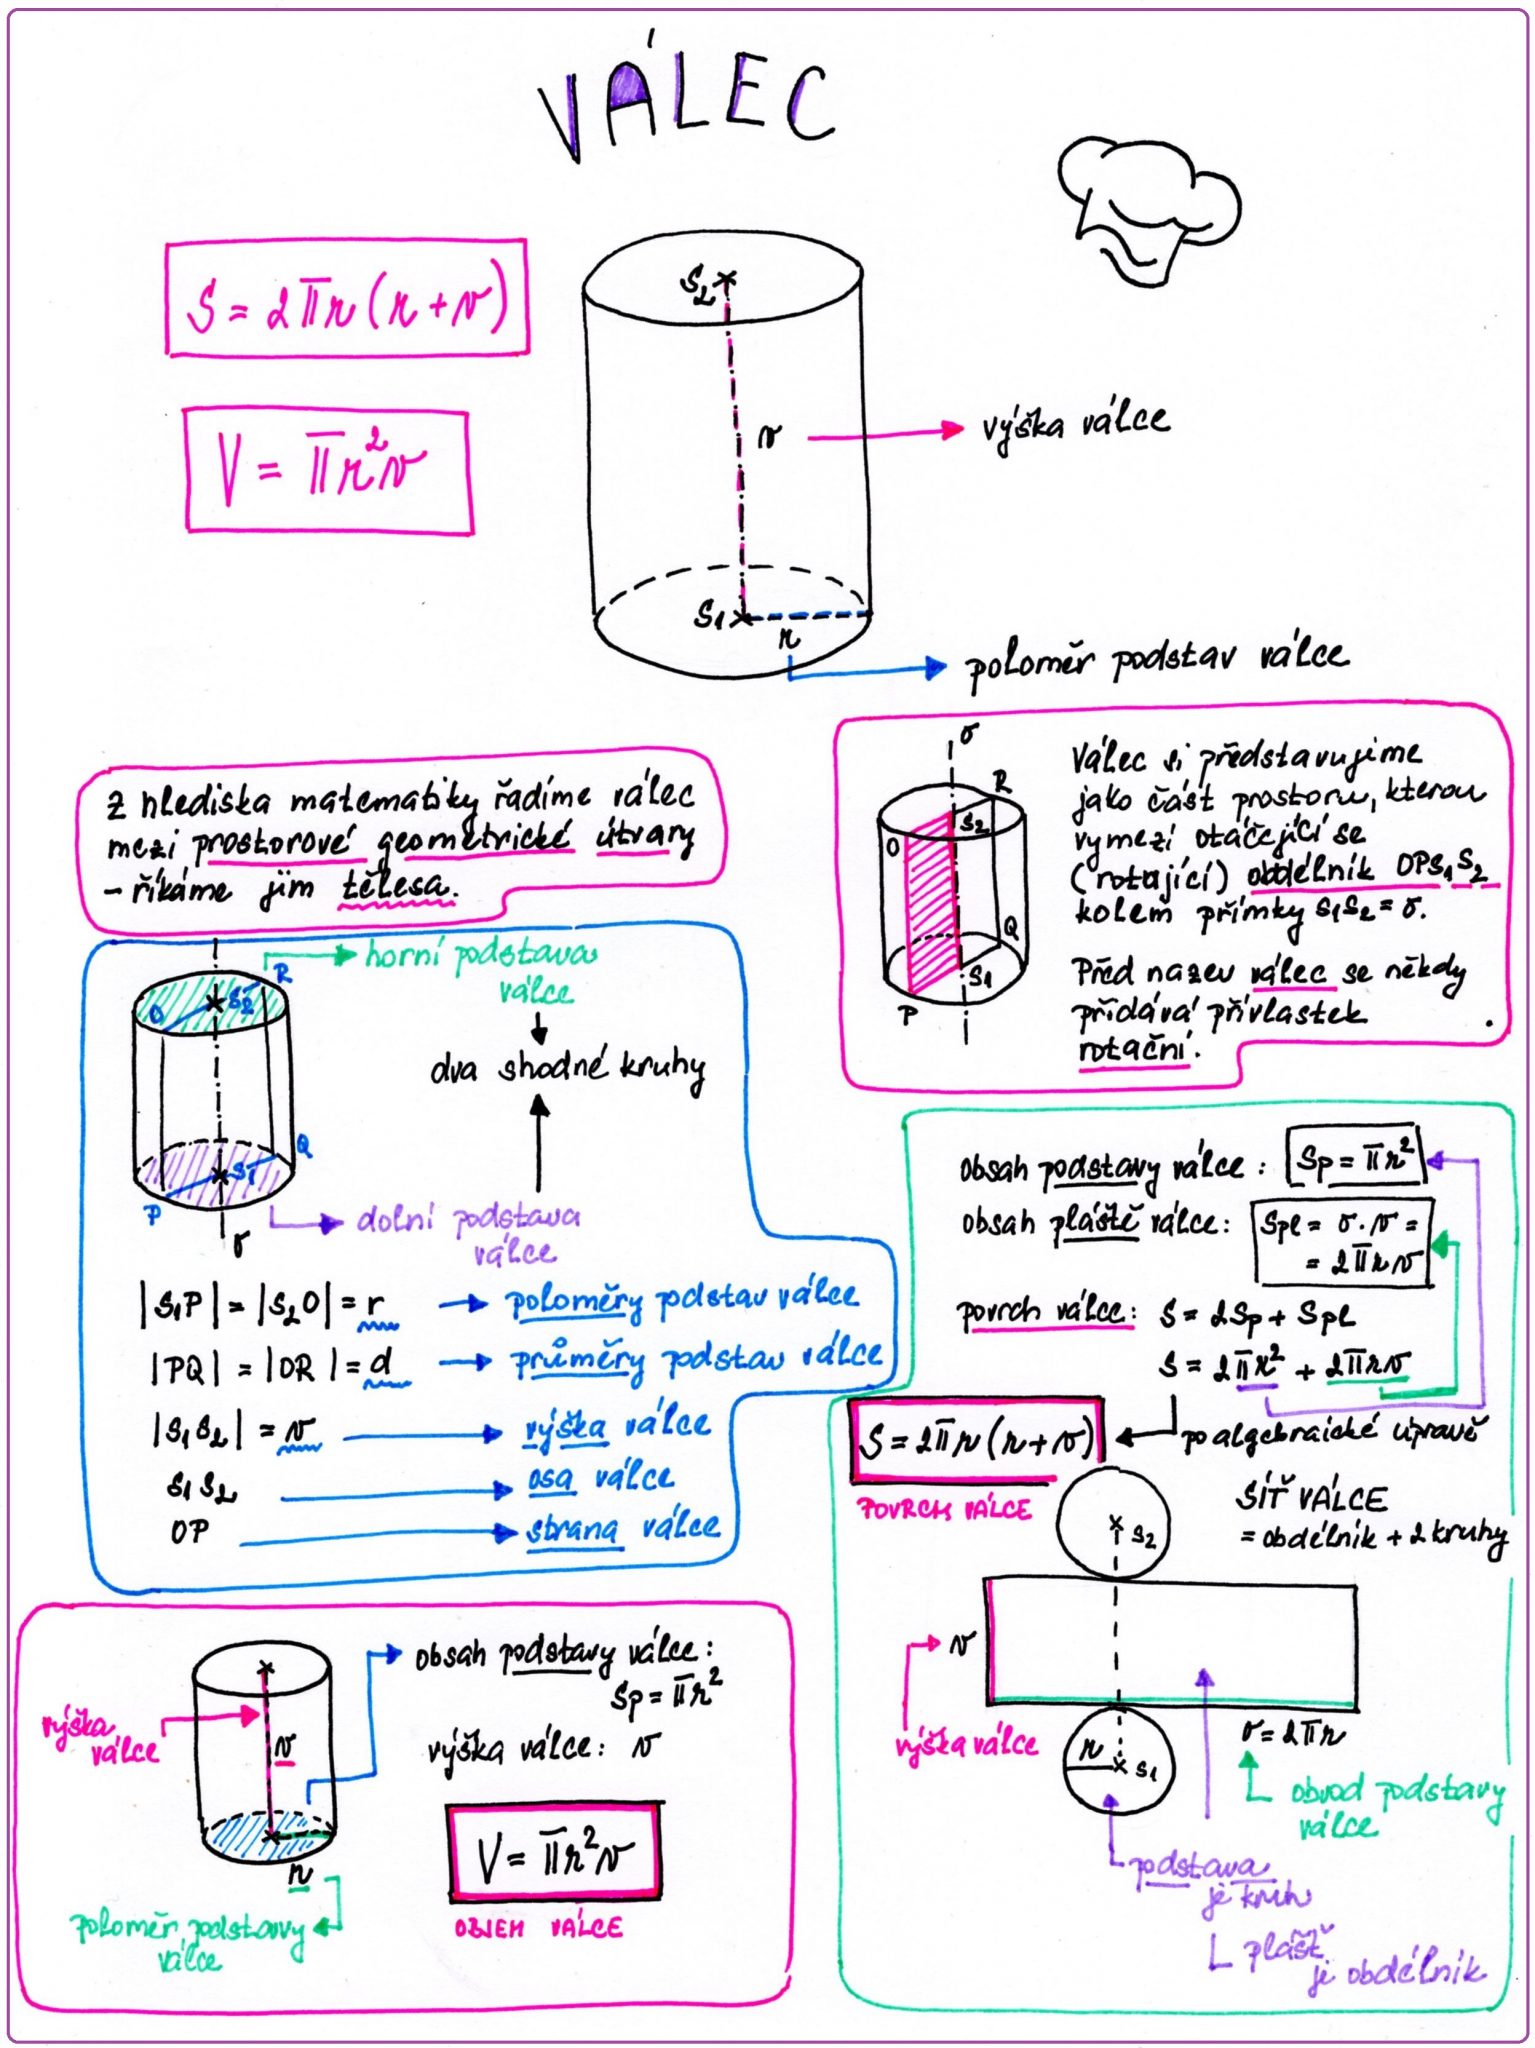 VÁLEC
S = 2πr(r+v)
V = πr²v
S₂
v
výška válce
S₁
r
poloměr podstav válce
Z hlediska matematiky řadíme válec
mezi prostorové geometrické útvary
– říkáme jim tělesa.
o
R
S₂
O
Q
S₁
P
Válec si představujeme
jako část prostoru, kterou
vymezí otáčející se
(rotující) obdélník OPS₁S₂
kolem přímky S₁S₂ = o.
Před nazev válec se někdy
přidává přívlastek
rotační.
horní podstava
válce
R
S₂
O
dva shodné kruhy
Q
S₁
P
dolní podstava
válce
o
|S₁P| = |S₂O| = r
poloměry podstav válce
|PQ| = |OR| = d
průměry podstav válce
|S₁S₂| = v
výška válce
S₁S₂
osa válce
OP
strana válce
obsah podstavy válce:
Sp = πr²
obsah pláště válce:
Spl = o·v =
= 2πrv
povrch válce:
S = 2Sp + Spl
S = 2πr² + 2πrv
S = 2πr(r+v)
po algebraické úpravě
POVRCH VÁLCE
SÍŤ VÁLCE
= obdélník + 2 kruhy
S₂
v
výška válce
o = 2πr
r
S₁
obvod podstavy
válce
podstava
je kruh
plášť
je obdélník
obsah podstavy válce:
Sp = πr²
výška
válce
v
výška válce: v
V = πr²v
OBJEM VÁLCE
r
poloměr podstavy
válce